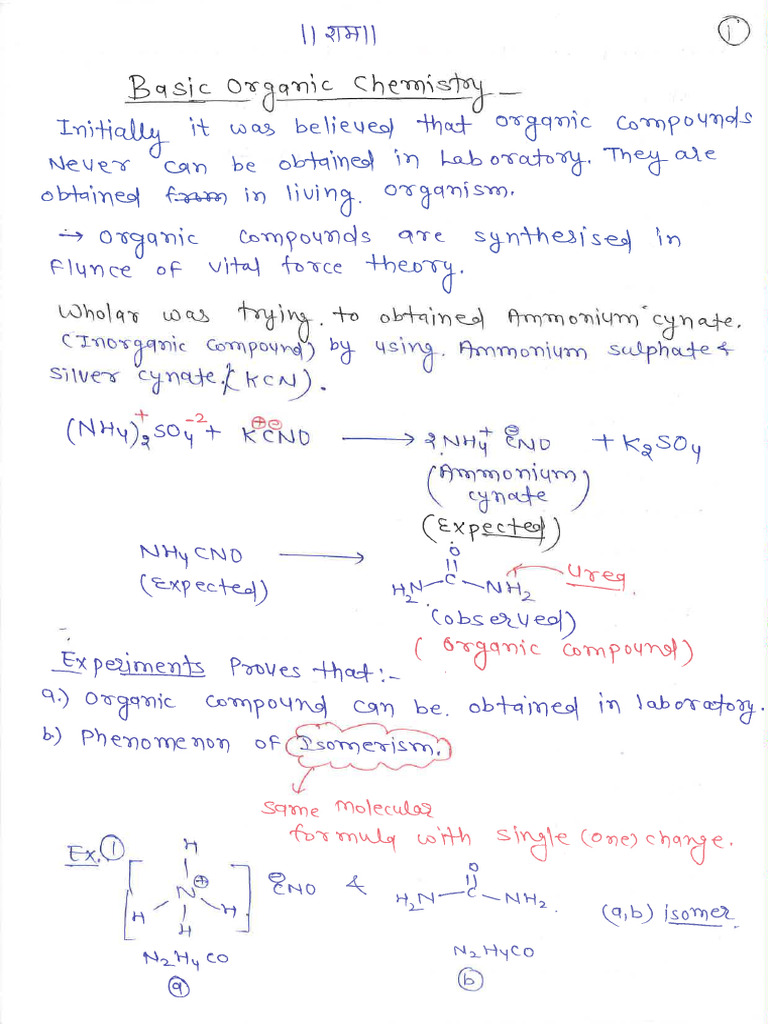 || राम ||
1
Basic Organic Chemistry
Initially it was believed that organic compounds
Never can be obtained in Laboratory. They are
obtained from in living. organism.
→ organic compounds are synthesised in
flunce of vital force theory.
Wholar was trying. to obtained Ammonium cynate.
(Inorganic compound) by using. Ammonium sulphate &
silver cynate. (KCN).
(NH4)2^+ SO4^-2 + K^⊕CNO^⊖ → 2.NH4^+ C^⊖NO + K2SO4
(Ammonium
cynate
(Expected)
NH4CNO →
(Expected)
O
||
H2N-C-NH2
Urea.
(observed)
(Organic compound)
Experiments Proves that:-
a.) Organic compound can be. obtained in laboratory.
b.) Phenomenon of Isomerism.
same molecular
formula with single (one) change.
Ex. 1
[H H N^⊕ H H] C^⊖NO & H2N-C-NH2. O
(a,b) isomer
N2H4CO N2H4CO
a b